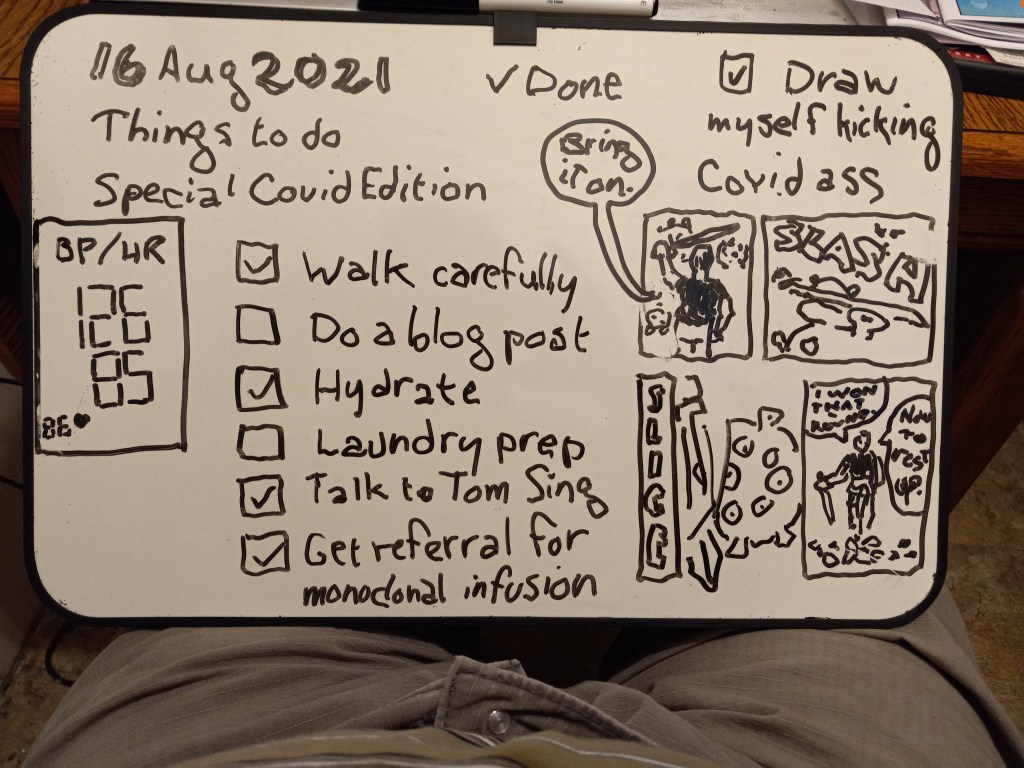 16 Aug 2021
Things to do
Special Covid Edition
✓ Done
☑ Draw
myself kicking
Covid ass
BP/HR
126
85
88 ♥
☑ Walk carefully
☐ Do a blog post
☑ Hydrate
☐ Laundry prep
☑ Talk to Tom Sing
☑ Get referral for
monoclonal infusion
Bring
it on.
SLASH
SLICE
I WON
THAT
ROUND.
Now
to
rest
up.